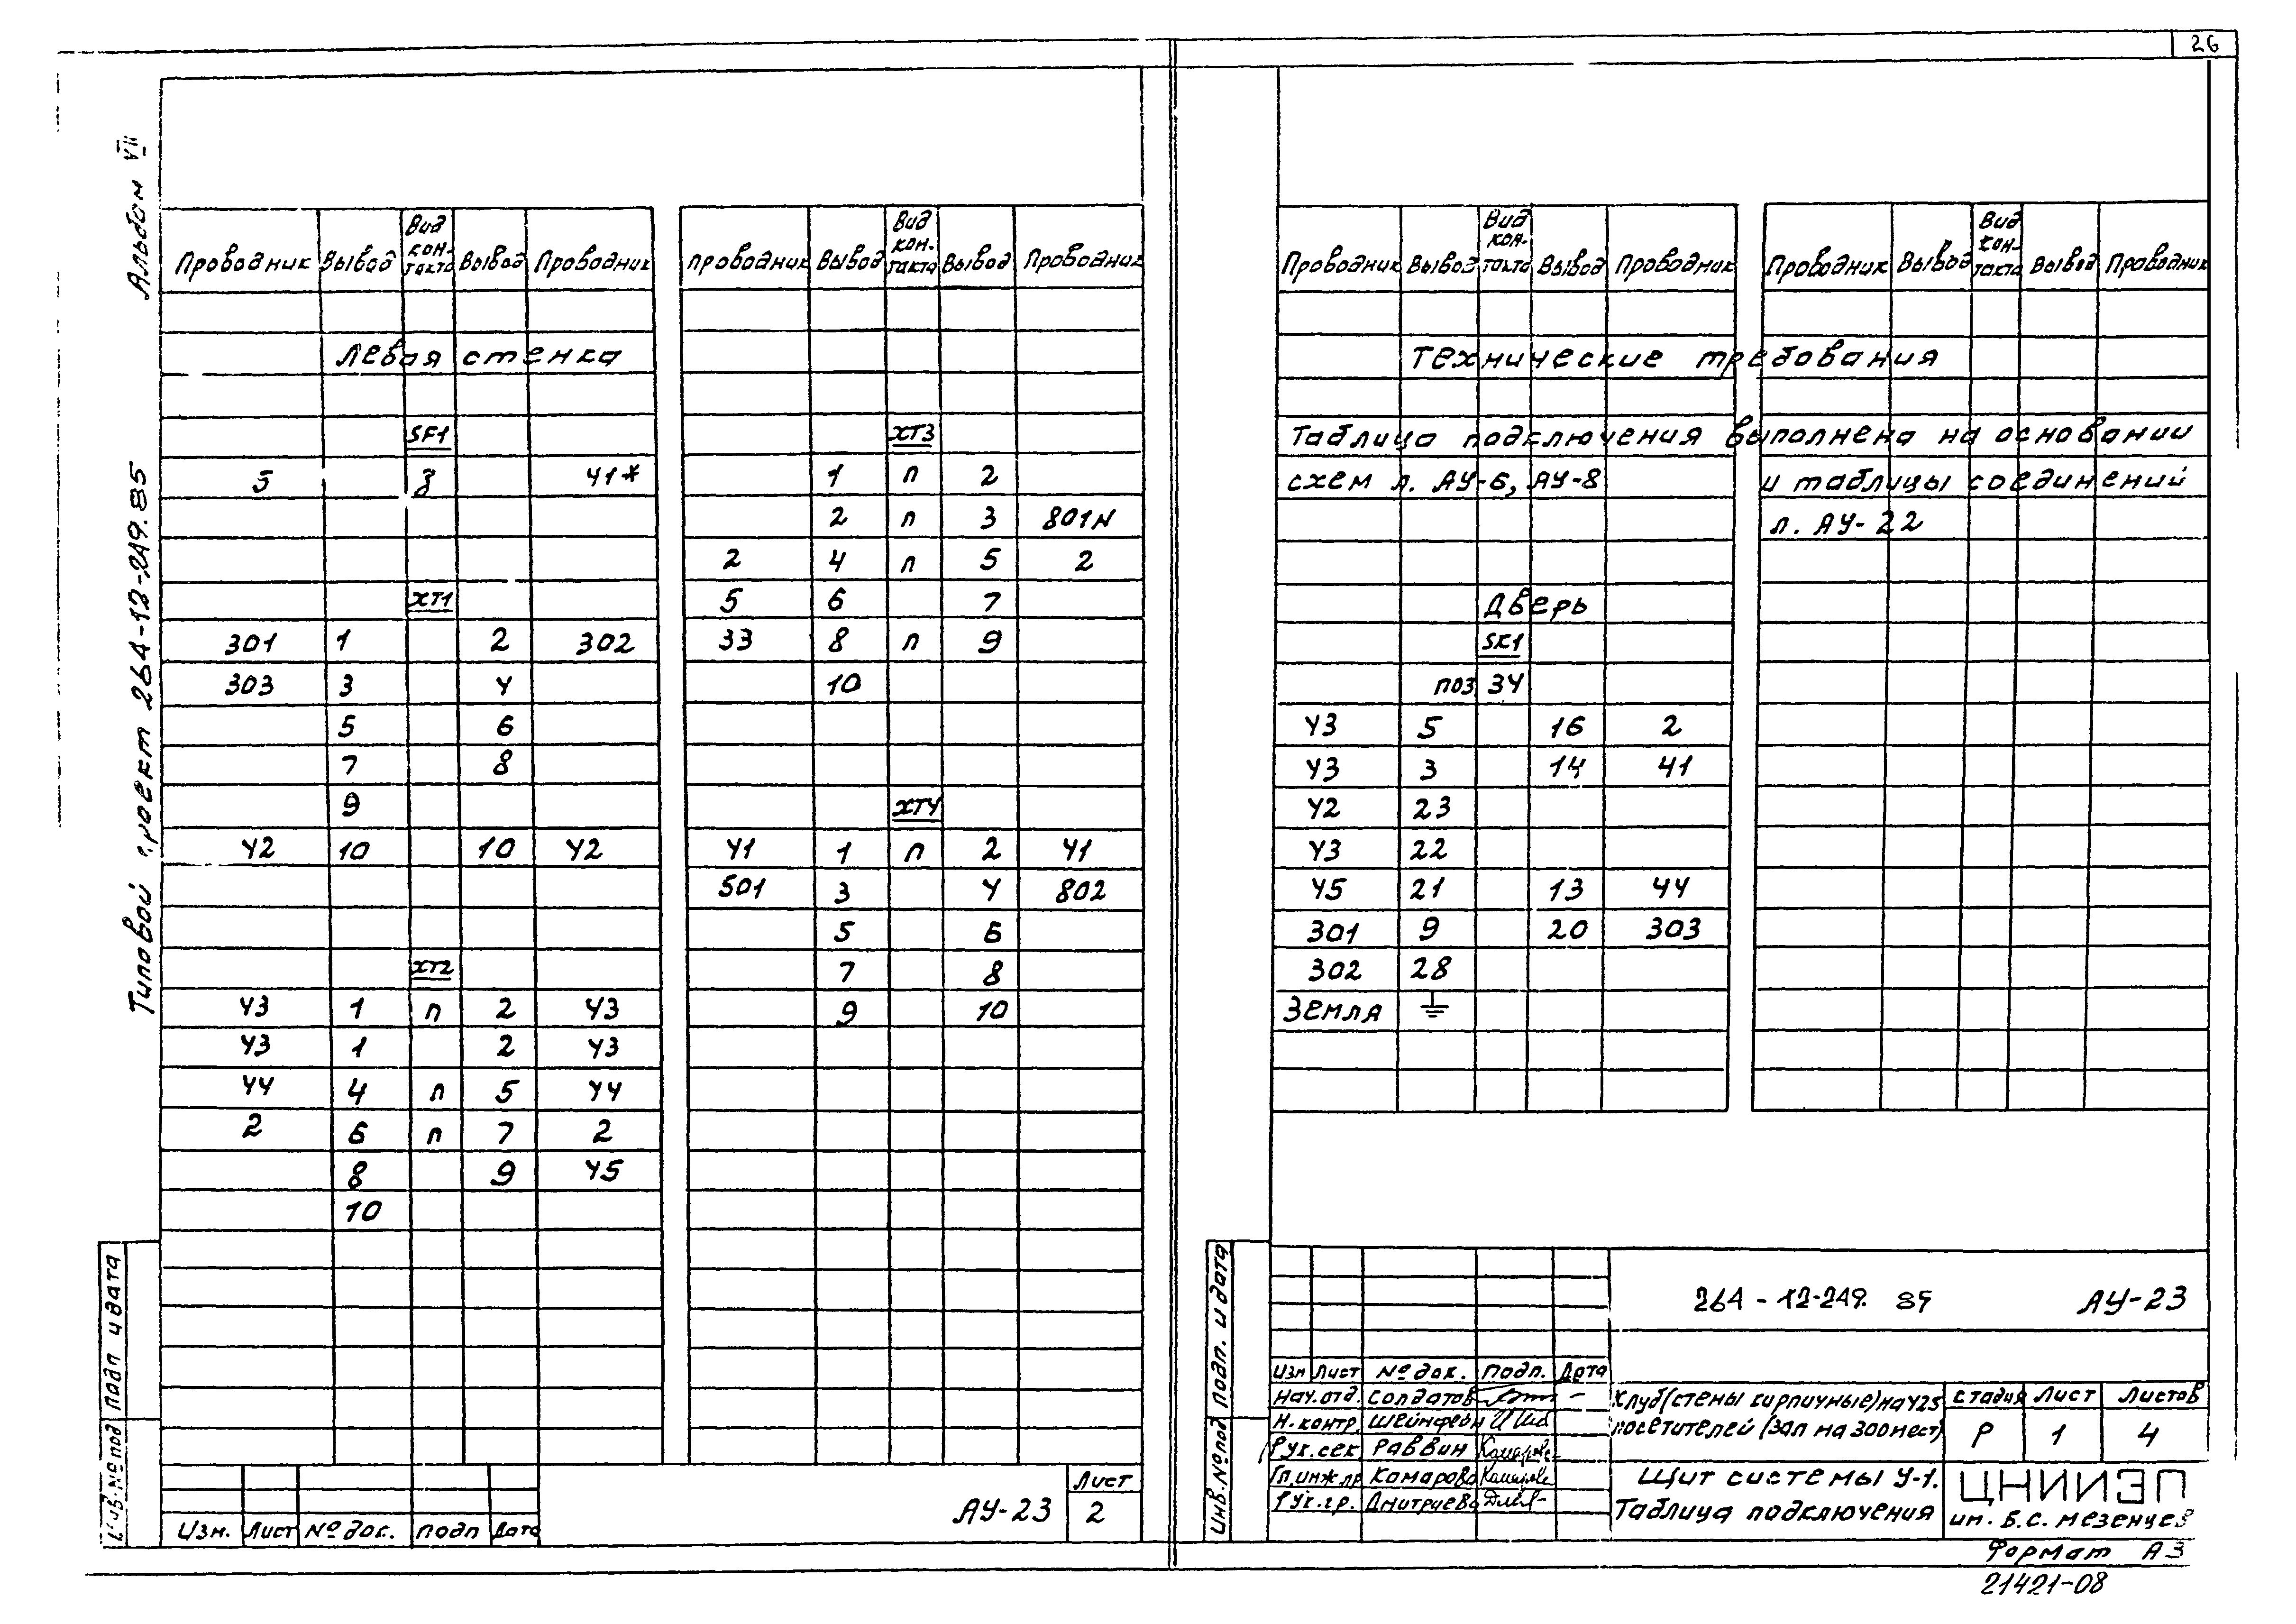 26
Альбом VII
Типовой проект 264-12-249.85
Проводник Вывод Вид контакта Вывод Проводник
Левая стенка
SF1
3 41*
XT1
301 1 2 302
303 3 4
5 6
7 8
9
42 10 10 42
XT2
43 1 п 2 43
43 1 2 43
44 4 п 5 44
2 6 п 7 2
8 9 45
10
Проводник Вывод Вид кон-такта Вывод Проводник
XT3
1 п 2
2 п 3 801N
2 4 п 5 2
5 6 7
33 8 п 9
10
XT4
41 1 п 2 41
501 3 4 802
5 6
7 8
9 10
Изм. Лист № док. Подп Дата
АУ-23
Лист
2
Инв. № под Подп и дата
Проводник Вывод Вид кон-такта Вывод Проводник
Проводник Вывод Вид кон-такта Вывод Проводник
Технические требования
Таблица подключения выполнена на основании
схем л. АУ-6, АУ-8 и таблицы соединений
л. АУ-22
Дверь
SK1
поз 34
43 5 16 2
43 3 14 41
42 23
43 22
45 21 13 44
301 9 20 303
302 28
Земля
Инв. № под Подп. и дата
264-12-249. 85 АУ-23
Изм Лист № док. Подп. Дата
Нач.отд. Солдатов
Н.контр. Шейнфейн
Рук.сек Раввин
Гл.инж.пр Комарова
Рук.гр. Дмитриева
Клуб (стены кирпичные) на 425
посетителей (зал на 300 мест)
Щит системы У-1.
Таблица подключения
Стадия Лист Листов
Р 1 4
ЦНИИЭП
им. Б.С. Мезенцева
Формат А3
21421-08